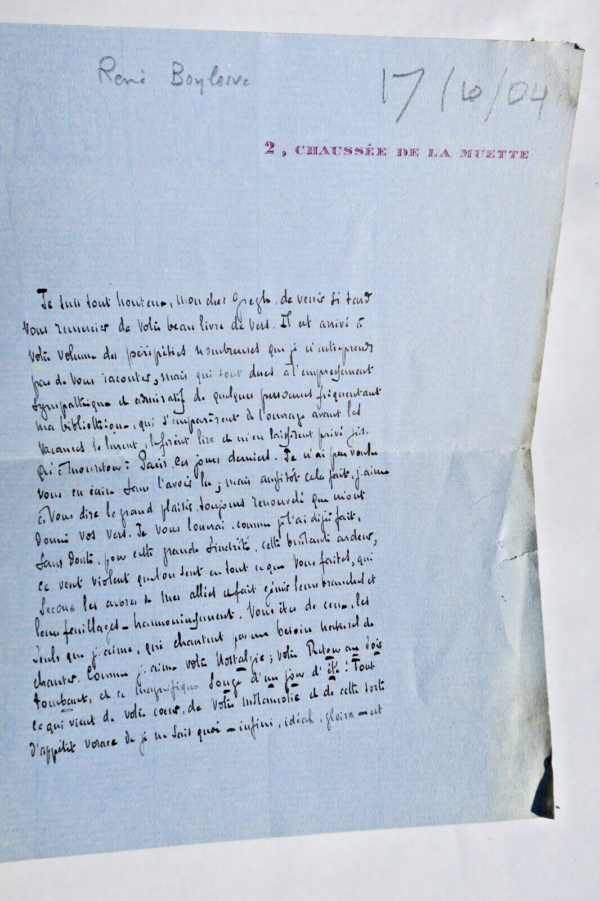 René Boylesve
17/10/04
2, CHAUSSÉE DE LA MUETTE
Je suis tout honteux, mon cher Gregh, de venir si tard
vous remercier de votre beau livre de vers. Il est arrivé à
votre volume des péripéties nombreuses que je n'entreprends
pas de vous raconter, mais qui sont dues à l'empressement
sympathique et admiratif de quelques personnes fréquentant
ma bibliothèque, qui s'emparèrent de l'ouvrage avant les
vacances le lurent, le firent lire et m'en laissèrent privé jus-
qu'à mon retour à Paris, ces jours derniers. Je n'ai pas voulu
vous en écrire sans l'avoir lu ; mais aussitôt cela fait, j'aime
à vous dire le grand plaisir toujours renouvelé que m'ont
donné vos vers. Je vous louerai, comme je l'ai déjà fait,
sans doute, pour cette grande sincérité, cette brûlante ardeur,
ce vent violent qu'on sent en tout ce que vous faites, qui
secoue les arbres de nos allées et fait gémir leurs branches et
leurs feuillages – harmonieusement. Vous êtes de ceux, les
seuls que j'aime, qui chantent par un besoin naturel de
chanter. Comme j'aime votre Nostalgie ; votre Retour au soir
tombant, et ce magnifique Songe d'un jour d'été ! Tout
ce qui vient de votre cœur, de votre mélancolie et de cette sorte
d'appétit vorace de je ne sais quoi – infini, idéal, gloire – est